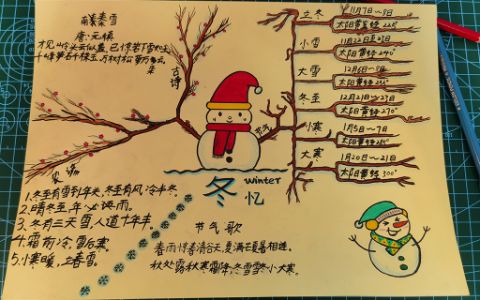 唐·元稹
才见岭头云似盖，已惊岩下雪如尘。
千峰笋石千株玉，万树松萝万朵云
古诗
农谚
1.冬至有雪到年关，冬至有风，冷半冬。
2.晴冬至，年必雨。
3.冬有三天雪，人道十年丰。
4.霜前冷，雪后寒。
5.小寒暖，立春雪。
冬
winter
忆
节气
节气歌
春雨惊春清谷天，夏满芒夏暑相连，
秋处露秋寒霜降，冬雪雪冬小大寒。
立冬
11月7日~8日
太阳黄经225°
小雪
11月22日至23日
太阳黄经240°
大雪
12月6日~8日
太阳黄经
冬至
12月21日~23日
太阳黄经270°
小寒
1月5日~7日
太阳黄经285°
大寒
1月20日~21日
太阳黄经300°